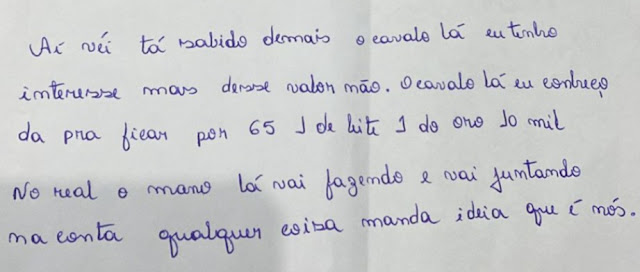 Aí véi tá sabido demais o cavalo lá eu tinho
interesse mas desse valor não. O cavalo lá eu conheço
da pra ficar por 65 J de kite J do oro Jo mil
No real o mano lá vai fazendo e vai juntando
na conta qualquer coisa manda ideia que é nós.